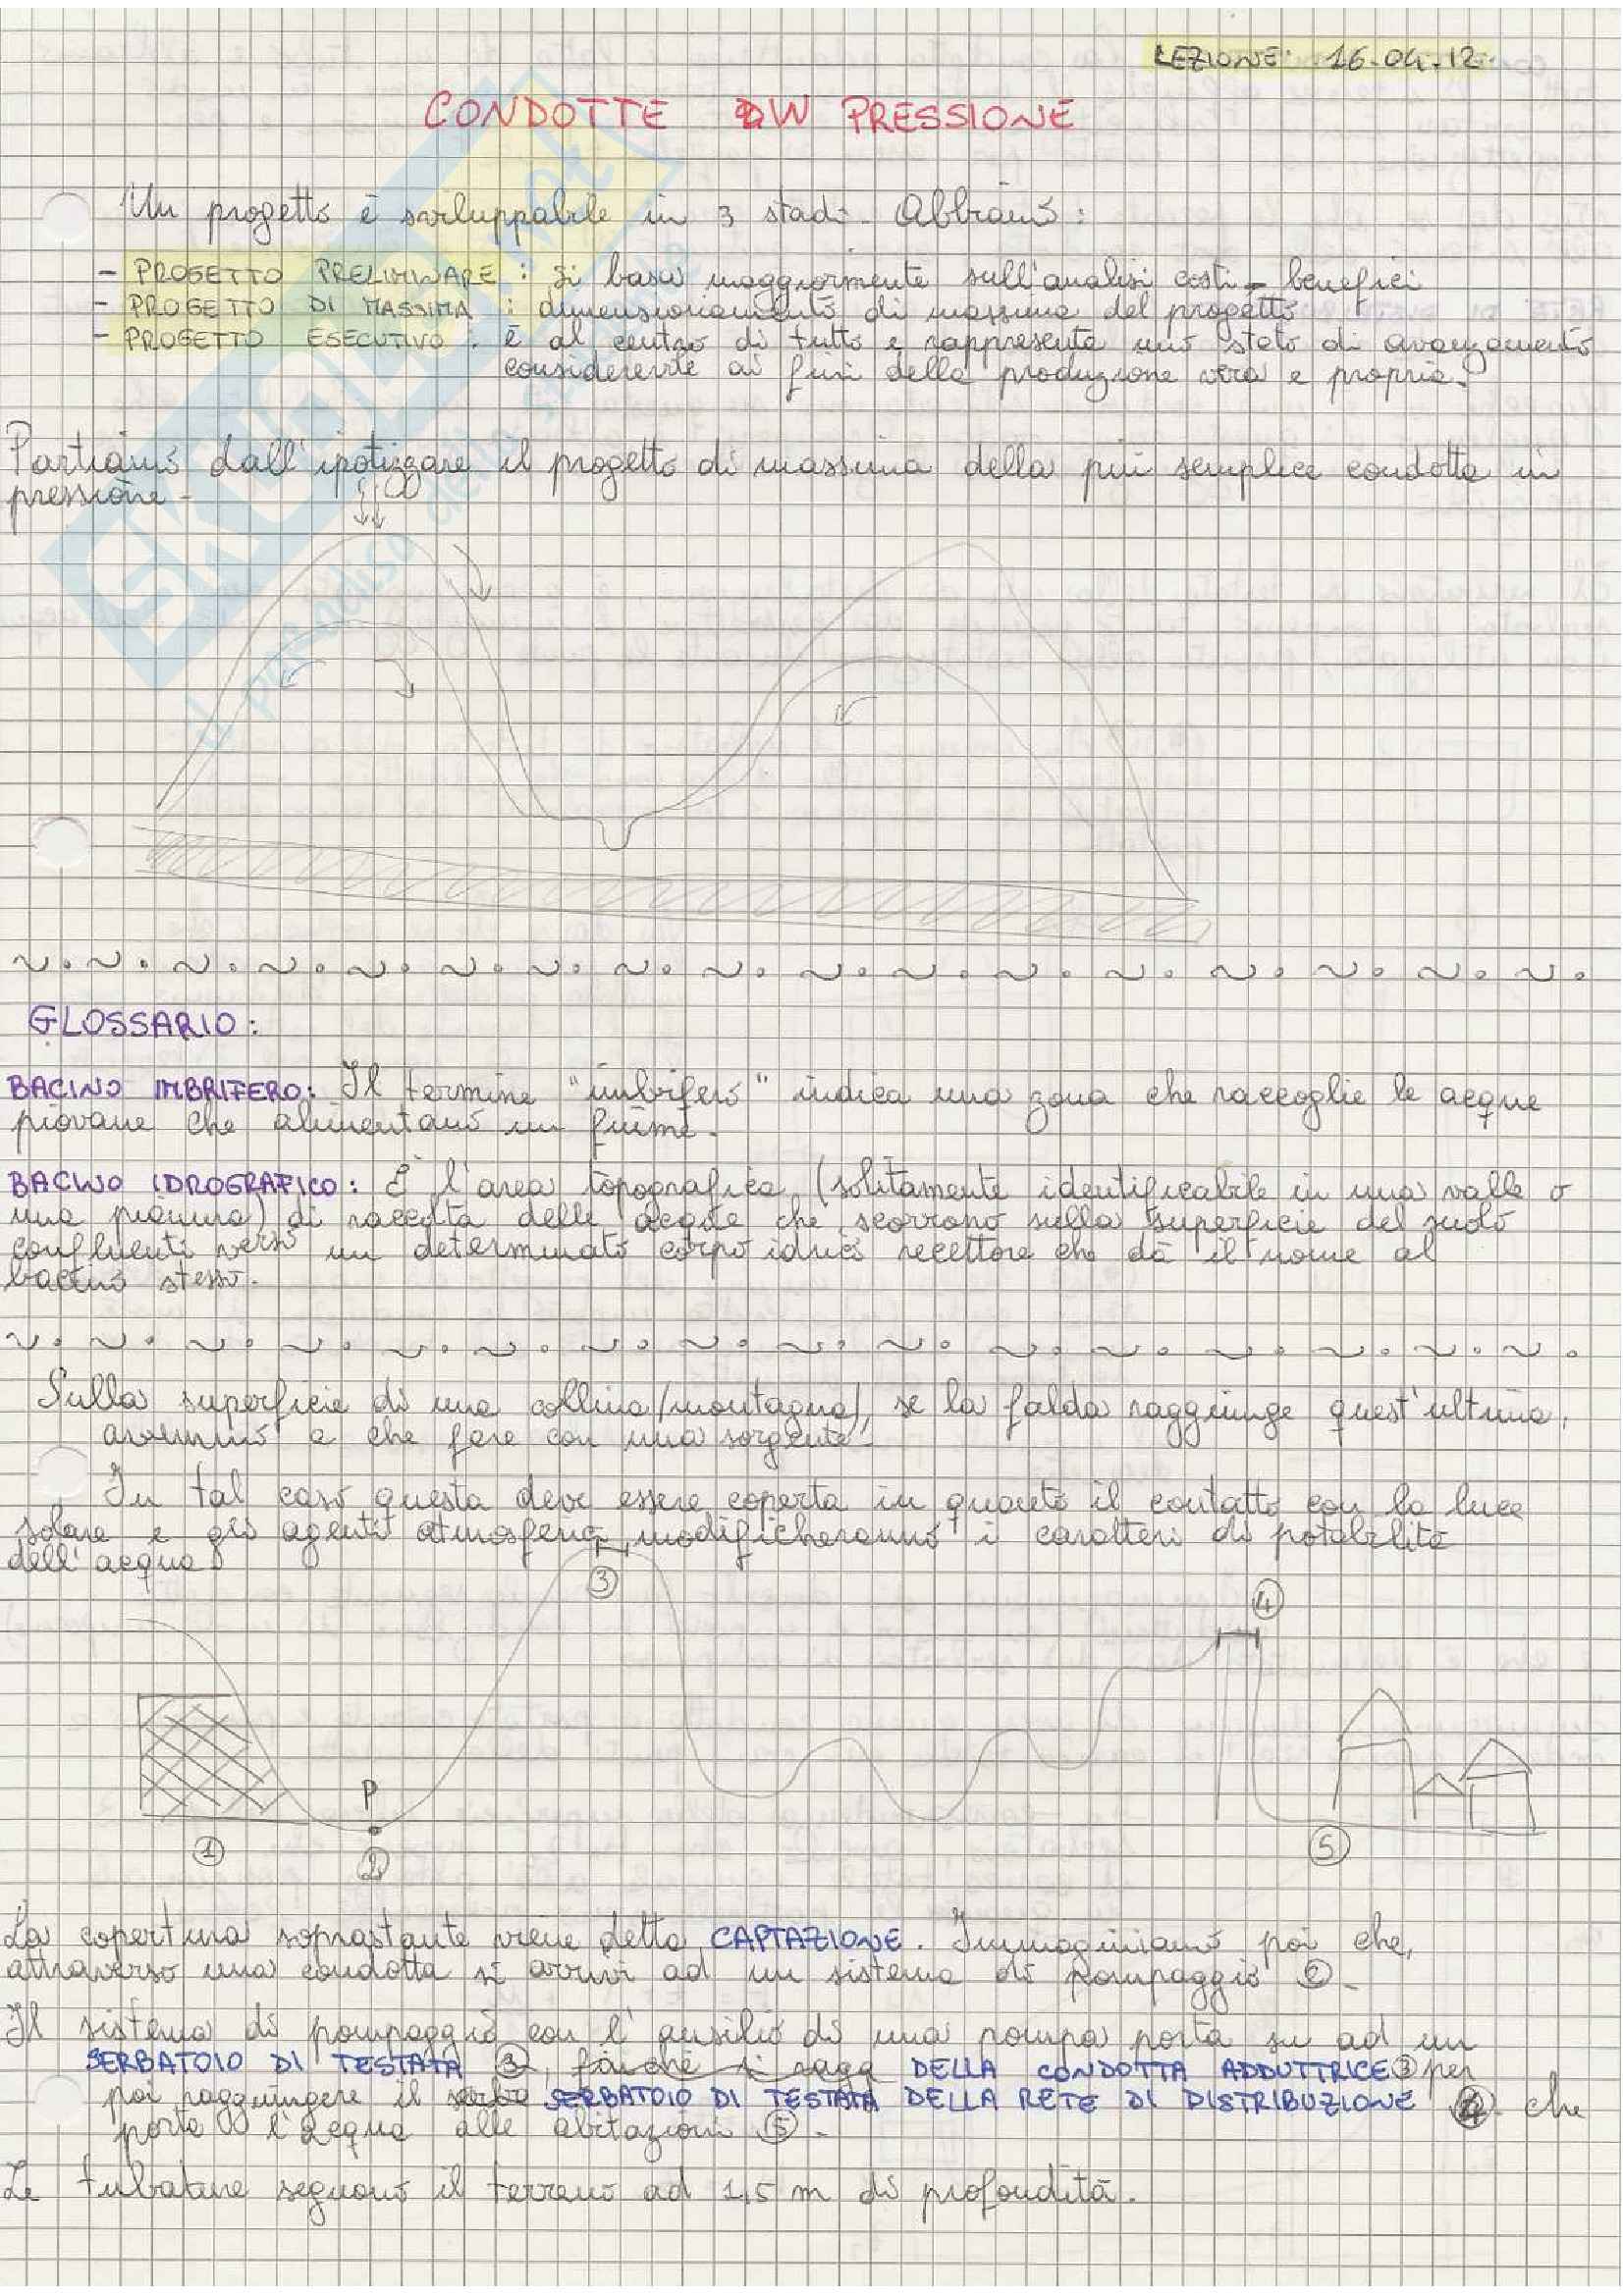 LEZIONE: 16.04.12.
CONDOTTE IN PRESSIONE
Un progetto è sviluppabile in 3 stadi. Abbiamo:
- PROGETTO PRELIMINARE: si basa maggiormente sull'analisi costi-benefici
- PROGETTO DI MASSIMA: dimensionamento di massima del progetto
- PROGETTO ESECUTIVO: è al centro di tutto e rappresenta uno stato di avanzamento
considerevole ai fini della produzione vera e propria.
Partiamo dall'ipotizzare il progetto di massima della più semplice condotta in
pressione.
GLOSSARIO:
BACINO IMBRIFERO: Il termine "imbrifero" indica una zona che raccoglie le acque
piovane che alimentano un fiume.
BACINO IDROGRAFICO: È l'area topografica (solitamente identificabile in una valle o
una pianura) di raccolta delle acque che scorrono sulla superficie del suolo
confluenti verso un determinato corpo idrico recettore che dà il nome al
bacino stesso.
Sulla superficie di una collina/montagna, se la falda raggiunge quest'ultima,
avremmo a che fare con una sorgente.
In tal caso questa deve essere coperta in quanto il contatto con la luce
solare e gli agenti atmosferici modificheranno i caratteri di potabilità
dell'acqua.
3
4
P
1
2
5
La copertura soprastante viene detta CAPTAZIONE. Immaginiamo poi che,
attraverso una condotta si arrivi ad un sistema di pompaggio 2.
Il sistema di pompaggio con l'ausilio di una pompa porta su ad un
SERBATOIO DI TESTATA 3, finché si ragg DELLA CONDOTTA ADDUTTRICE 3 per
poi raggiungere il serba SERBATOIO DI TESTATA DELLA RETE DI DISTRIBUZIONE 4 che
porta l'acqua alle abitazioni 5.
Le tubature seguono il terreno ad 1,5 m di profondità.
SKUOLA.net
il paradiso dello studente